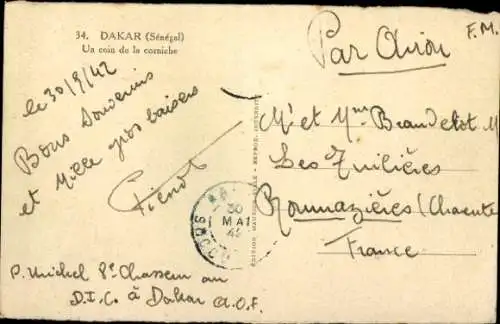 34. DAKAR (Sénégal)
Un coin de la corniche
F.M.
Par Avion
le 30/5/42
Bons Souvenirs
et Mille gros baisers
Pierrot
30
MAI
42
Mr et Mme Beaudelot M
Les Tuilières
Roumazières (Charente
France
P. Michel 2e Chasseur au
D.I.C. à Dakar A.O.F.